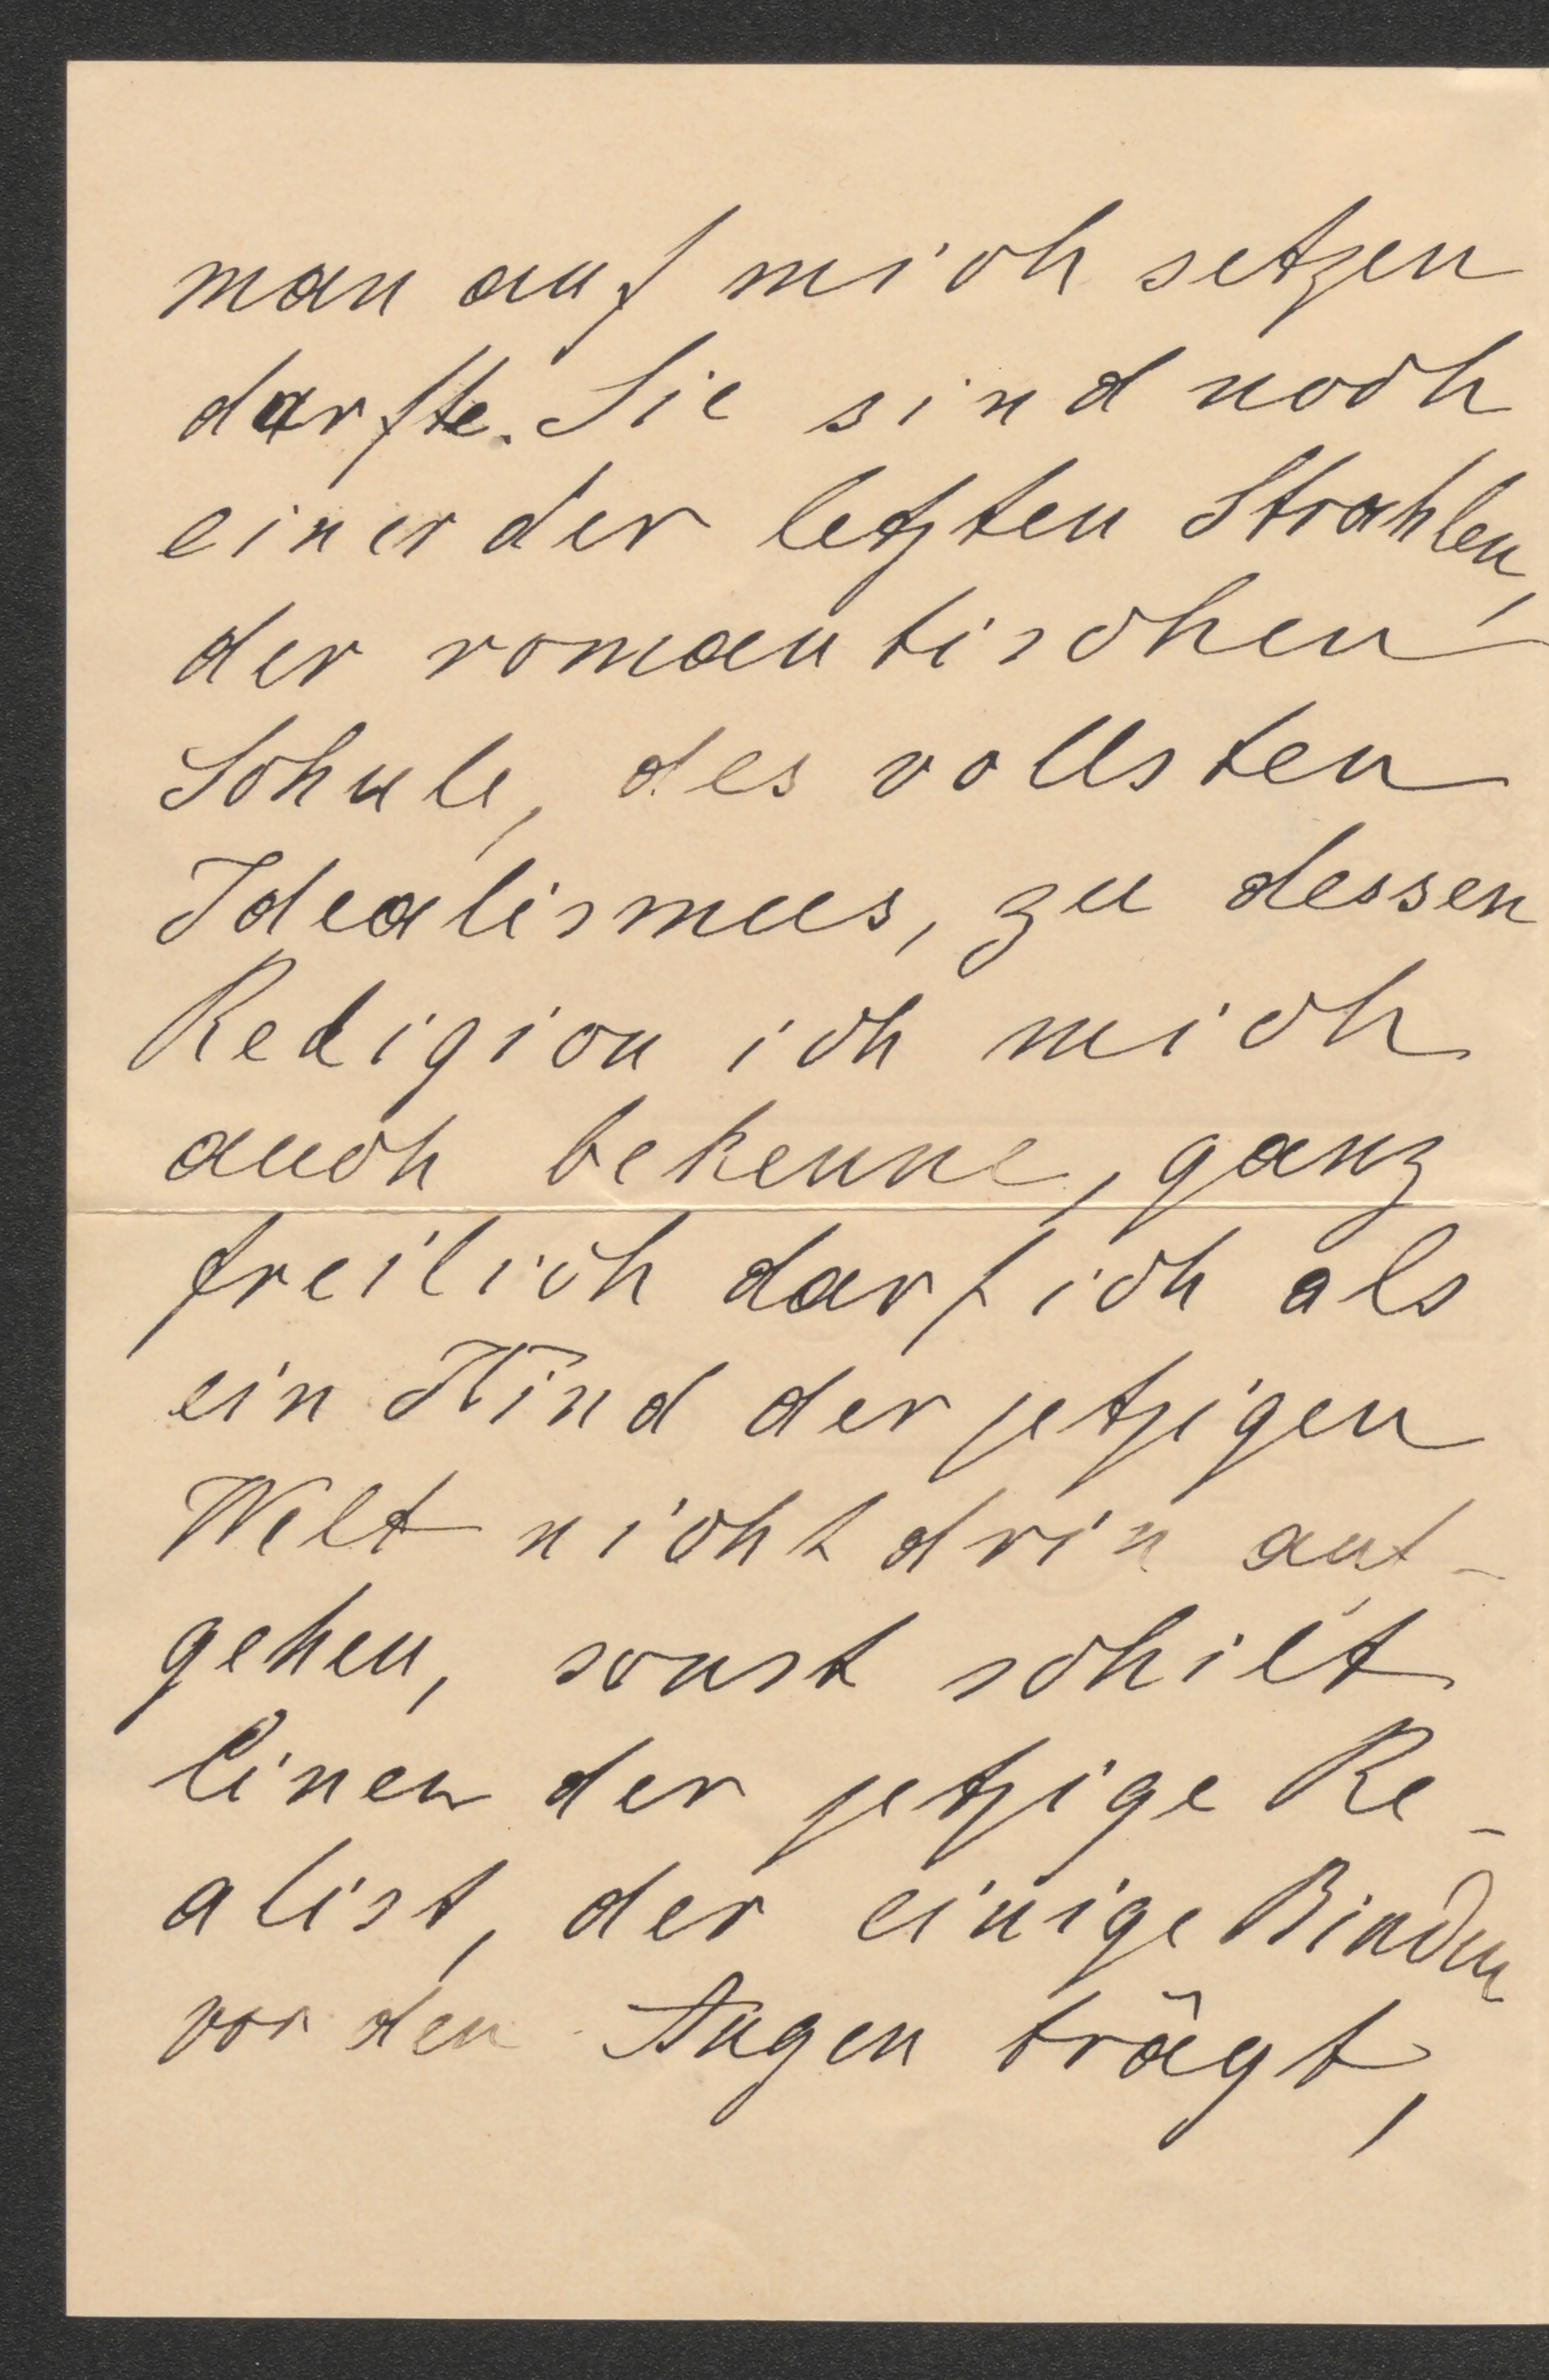 man auf mich setzen
darfte. Sie sind noch
einer der letzten Strahlen,
der romantischen
Schule, des vollsten
Idealismus, zu dessen
Religion ich mich
auch bekenne, ganz
freilich darf ich als
ein Kind der jetzigen
Welt nicht drin auf-
gehen, sonst schilt
Einen der jetzige Re-
alist, der einige Binden
vor den Augen trägt,